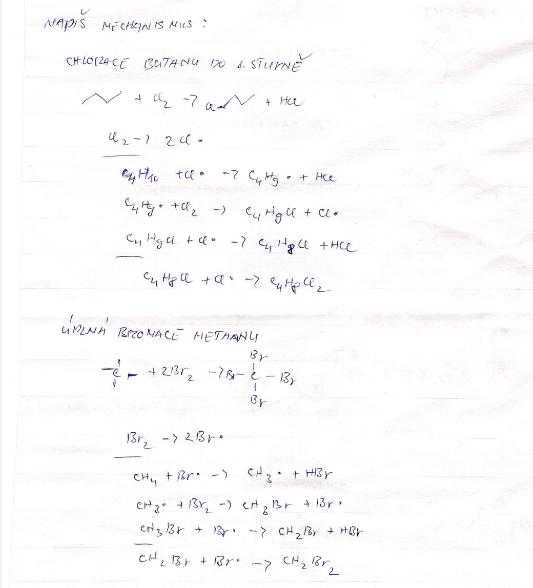 NAPIŠ MECHANISMUS :
CHLORACE BUTANU DO 1. STUPNĚ
+ Cl2 -> Cl + HCl
Cl2 -> 2Cl•
C4H10 + Cl• -> C4H9• + HCl
C4H9• + Cl2 -> C4H9Cl + Cl•
C4H9Cl + Cl• -> C4H8Cl + HCl
C4H8Cl + Cl• -> C4H8Cl2
ÚPLNÁ BROMACE METHANU
Br
-C- + 2Br2 -> Br - C - Br
Br
Br2 -> 2Br•
CH4 + Br• -> CH3• + HBr
CH3• + Br2 -> CH3Br + Br•
CH3Br + Br• -> CH2Br + HBr
CH2Br + Br• -> CH2Br2